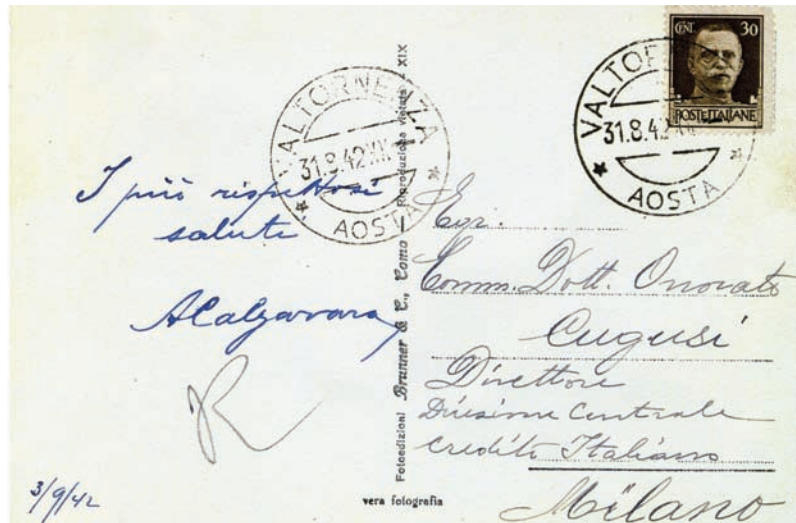 CENT. 30
POSTE ITALIANE
VALTORNENZA
31.8.42 XX
AOSTA
VALTO
31.8.42
AOSTA
I più rispettosi
saluti
ACalgavara
R
3/9/42
Fotoedizioni Brunner & C., Como — Riproduzione vietata - XIX
vera fotografia
Egr.
Comm. Dott. Onorato
Cugusi
Direttore
Direzione Centrale
Credito Italiano
Milano